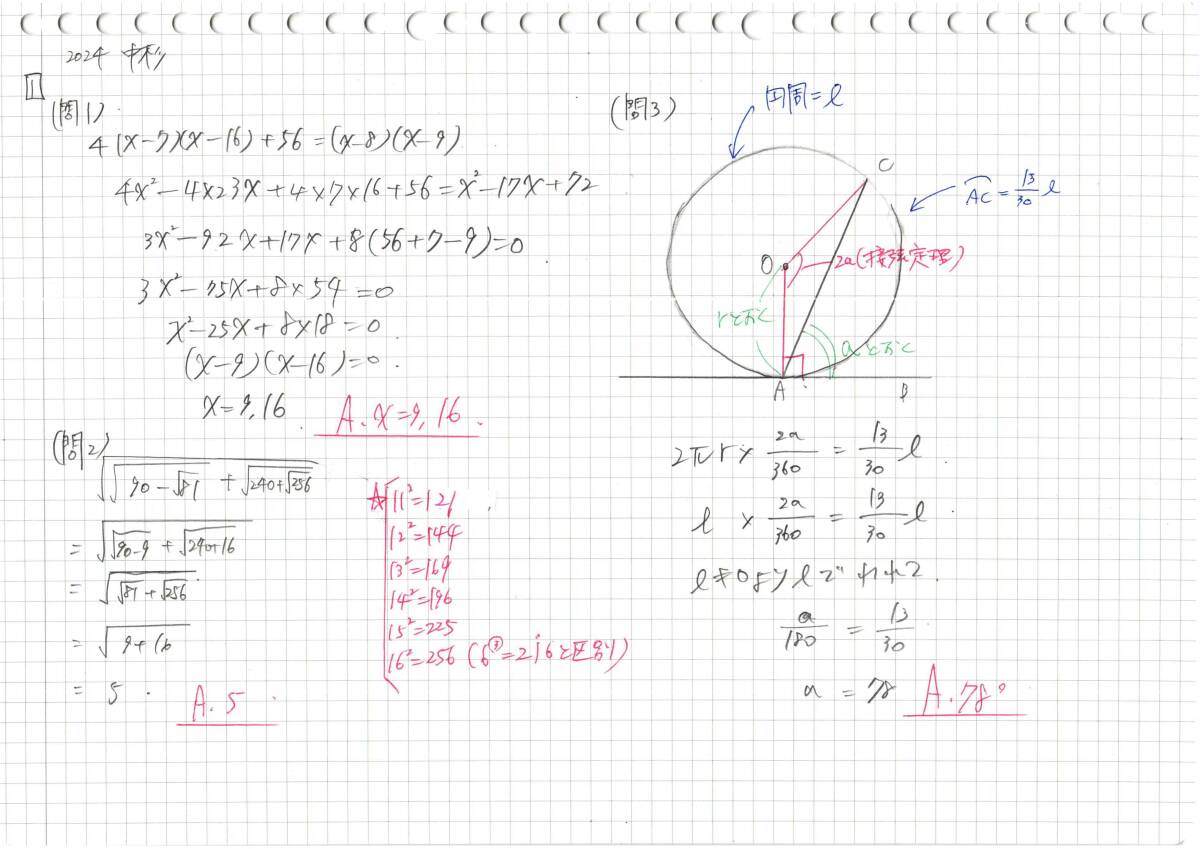 2024 中秋
1
(問1)
4(x-7)(x-16)+56=(x-8)(x-9)
4x²-4×23x+4×7×16+56=x²-17x+72
3x²-92x+17x+8(56+7-9)=0
3x²-75x+8×54=0
x²-25x+8×18=0
(x-9)(x-16)=0.
x=9,16
A. x=9, 16.
(問2)
√(√(90-√81)+√(240+√256))
=√(√(90-9)+√(240+16))
=√(√81+√256)
=√(9+16)
= 5.
A. 5
☆ 11²=121
12²=144
13²=169
14²=196
15²=225
16²=256 (6³=216と区別)
(問3)
円周=l
C
AC=13/30 l
O
2a(接弦定理)
rとおく
aとおく
A
B
2πr×2a/360=13/30 l
l×2a/360=13/30 l
l≠0よりlでわれて.
a/180=13/30
a=78
A. 78°